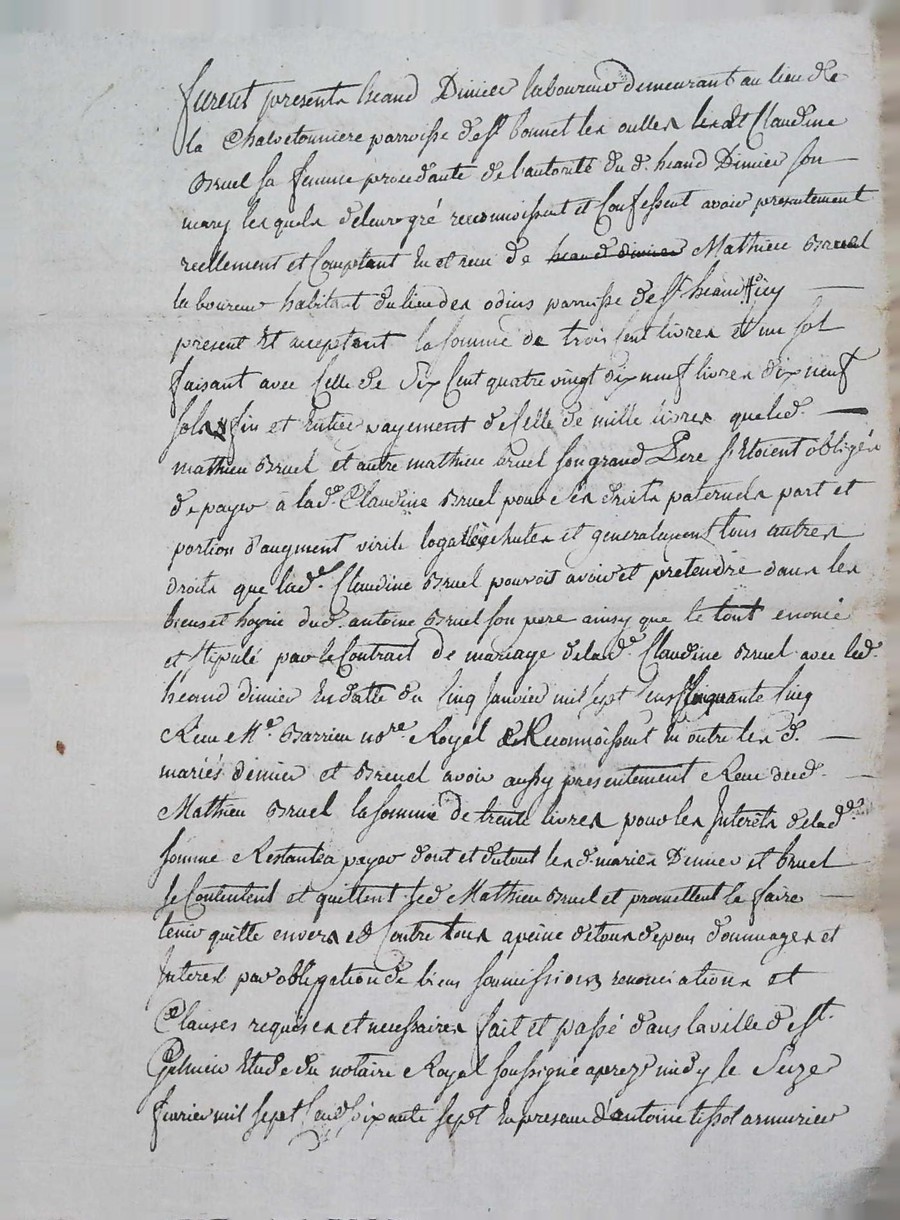 furent presents Jeand Dimier laboureur demeurant au lieu de
la Chalvetonniere parroisse de st bonnet les oulles Led et Claudine
Bruel sa femme procedante de l'autorité du d. Jeand Dimier son
mary lesquels de leur gré reconnoissent et Confessent avoir presentement
reellement et Comptant Eu et receu de Jeand dimier Mathieu Bruel
laboureur habitant du lieu des odins parroisse de st heand icy
present Et acceptant la somme de trois Cent livres et un sol
faisant avec Celle de Six Cent quatre vingt dix neuf livres dix neuf
sols fin et Entier payement de Celle de mille livres que led.
mathieu Bruel et autre mathieu bruel son grand Pere s'Etoient obligés
de payer a lad. Claudine Bruel pour ses droits paternels part et
portion d'augment virile echutes et generalement tous autres
droits que lad. Claudine Bruel pouvoit avoir et pretendre dans les
biens et hoyrie dud. antoine Bruel son pere ainsy que le tout enoncé
et stipulé par le Contrait de mariage de lad. Claudine Bruel avec led.
heand dimier En datte du Cinq Janvier mil sept Cens Cinquante Cinq
Receu Me. Barrieu nore. Royal Reconnoissent En outre les d.
mariés dimier et Breuel avoir aussy presentement Receu dud.
Mathieu Bruel la somme de trente livres pour les Interets de lad.
somme Restante a payer dont et du tout les d. mariés Dimier et bruel
se Contentent et quittent led Mathieu Bruel et promettent le faire
tenir quitte envers et Contre tous a peine de tous depens dommages et
Interes par obligation de biens soumissions renonciations et
Clauses requises et necessaires fait et passé dans la ville de st.
Galmier Etude du notaire Royal soussigné aprez midy le Seize
fevrier mil sept Cend soixante sept En presence d'antoine tissot armurier